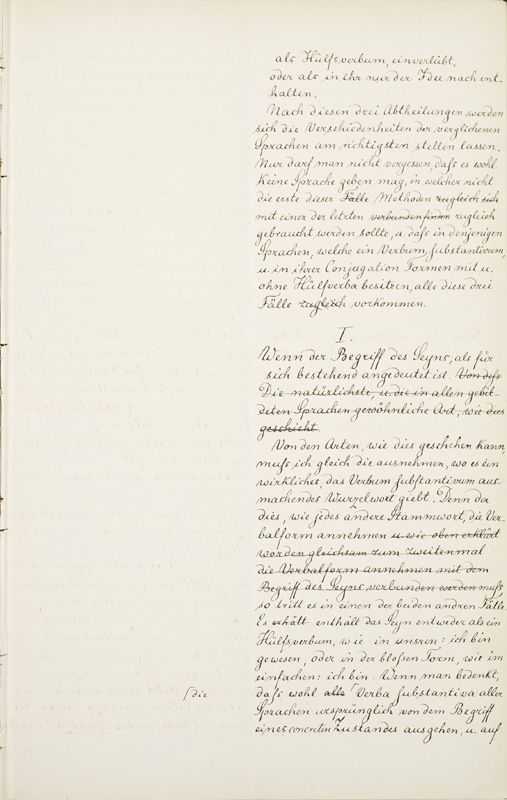 als Hülfsverbum, einverleibt,
oder als in ihr nur der Idee nach ent-
halten.
Nach diesen drei Abtheilungen werden
sich die Verschiedenheiten der verglichenen
Sprachen am richtigsten stellen lassen.
Nur darf man nicht vergessen, daſs es wohl
keine Sprache geben mag, in welcher nicht
die erste dieser Fälle Methoden zugleich sich
mit einer der letzten verbunden finden zugleich
gebraucht werden sollte, u. daſs in denjenigen
Sprachen, welche ein Verbum substantivum,
u. in ihrer Conjugation Formen mit u.
ohne Hülfverba besitzen, alle diese drei
Fälle zugleich vorkommen.
I.
Wenn der Begriff des Seyns, als für
sich bestehend angedeutet ist. Von des
Die natürlichste, u. die in allen gebil-
deten Sprachen gewöhnliche Art, wie dies
geschieht
Von den Arten, wie dies geschehen kann,
muſs ich gleich die ausnehmen, wo es ein
wirkliches, das Verbum substantivum aus-
machendes Wurzelwort giebt. Denn da
dies, wie jedes andere Stammwort, die Ver-
balform annehmen u. wie oben erklärt
worden gleichsam zum zweitenmal
die Verbalform annehmen mit dem
Begriff des Seyns verbunden werden muſs,
so tritt es in einen der beiden andren Fälle.
Es erhält enthält das Seyn entweder als ein
Hülfsverbum, wie in unsren: ich bin
gewesen, oder in der bloſsen Form, wie im
einfachen: ich bin. Wenn man bedenkt,
daſs wohl alle ſ Verba substantiva aller
ſdie
Sprachen ursprünglich von dem Begriff
eines concreten Zustandes ausgehen, u. auf